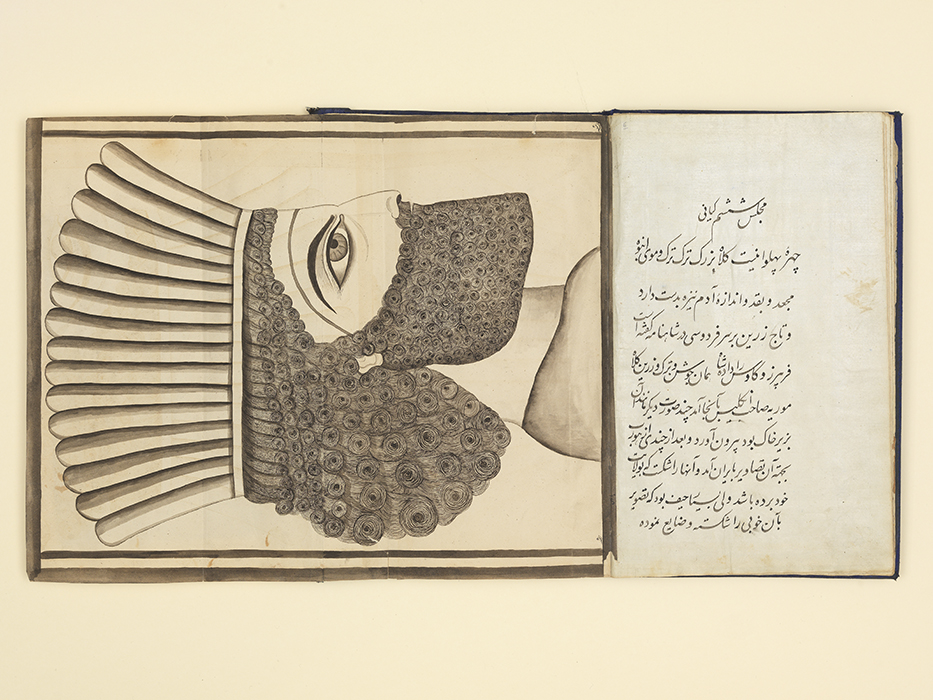 مجلس ششم کیانی
چهرهٔ پهلوانیست کلاه بزرگ ترک ترک و موی انبوه
مجعد و بقد و اندازهٔ آدم نیزه بدست دارد
و تاج زرین بر سر فردوسی در شاهنامه گفته است
فریبرز و کاوس را داد شاه کمان جوشن و ترک و زرین کلاه
موریه صاحب انگلیس آنجا آمد چند صورت دیگر که در آن
بزیر خاک بود بیرون آورد و بعد از چندی از
بجهة آن تصاویر بایران آمد و آنها را شکست که بولایت
خود برده باشد ولی بسیار حیف بود که تصویر
بآن خوبی را شکسته و ضایع نموده